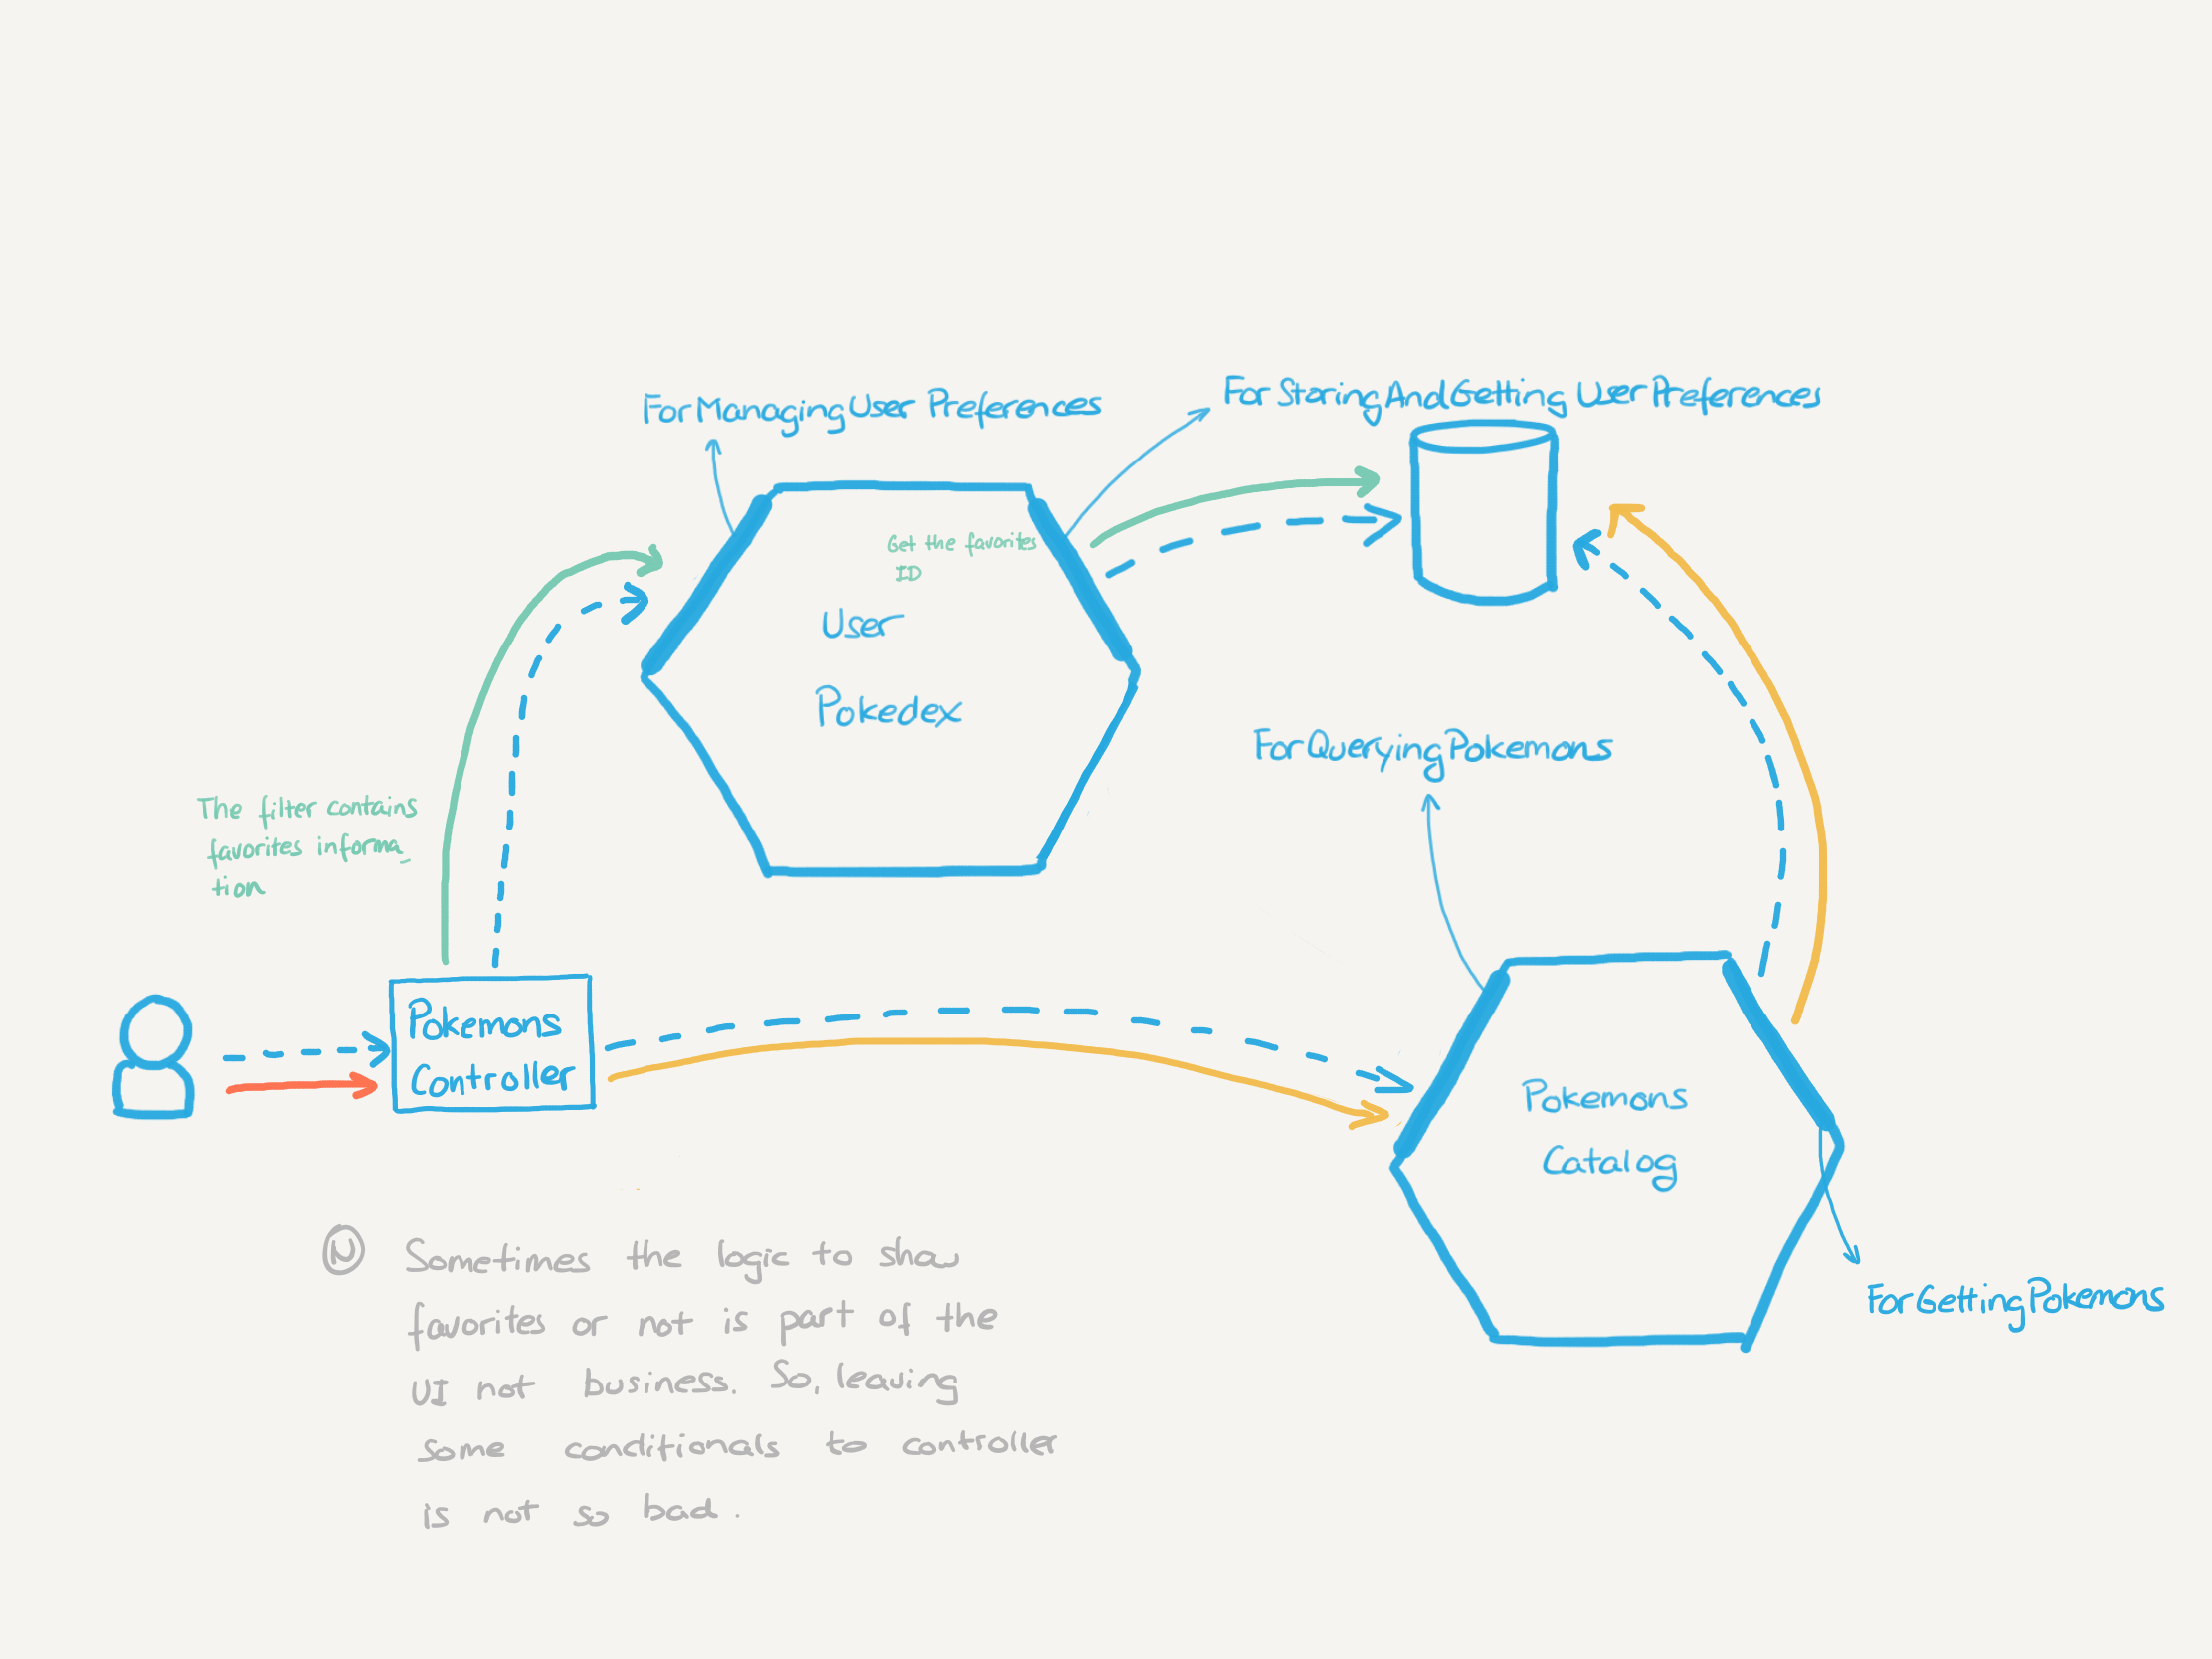 ForManagingUserPreferences
ForStoringAndGettingUserPreferences
Get the favorites
ID
User
Pokedex
ForQueryingPokemons
The filter contains
favorites informa_
tion
Pokemons
Controller
Pokemons
Catalog
ForGettingPokemons
N Sometimes the logic to show
favorites or not is part of the
UI not business. So, leaving
some conditionals to controller
is not so bad.